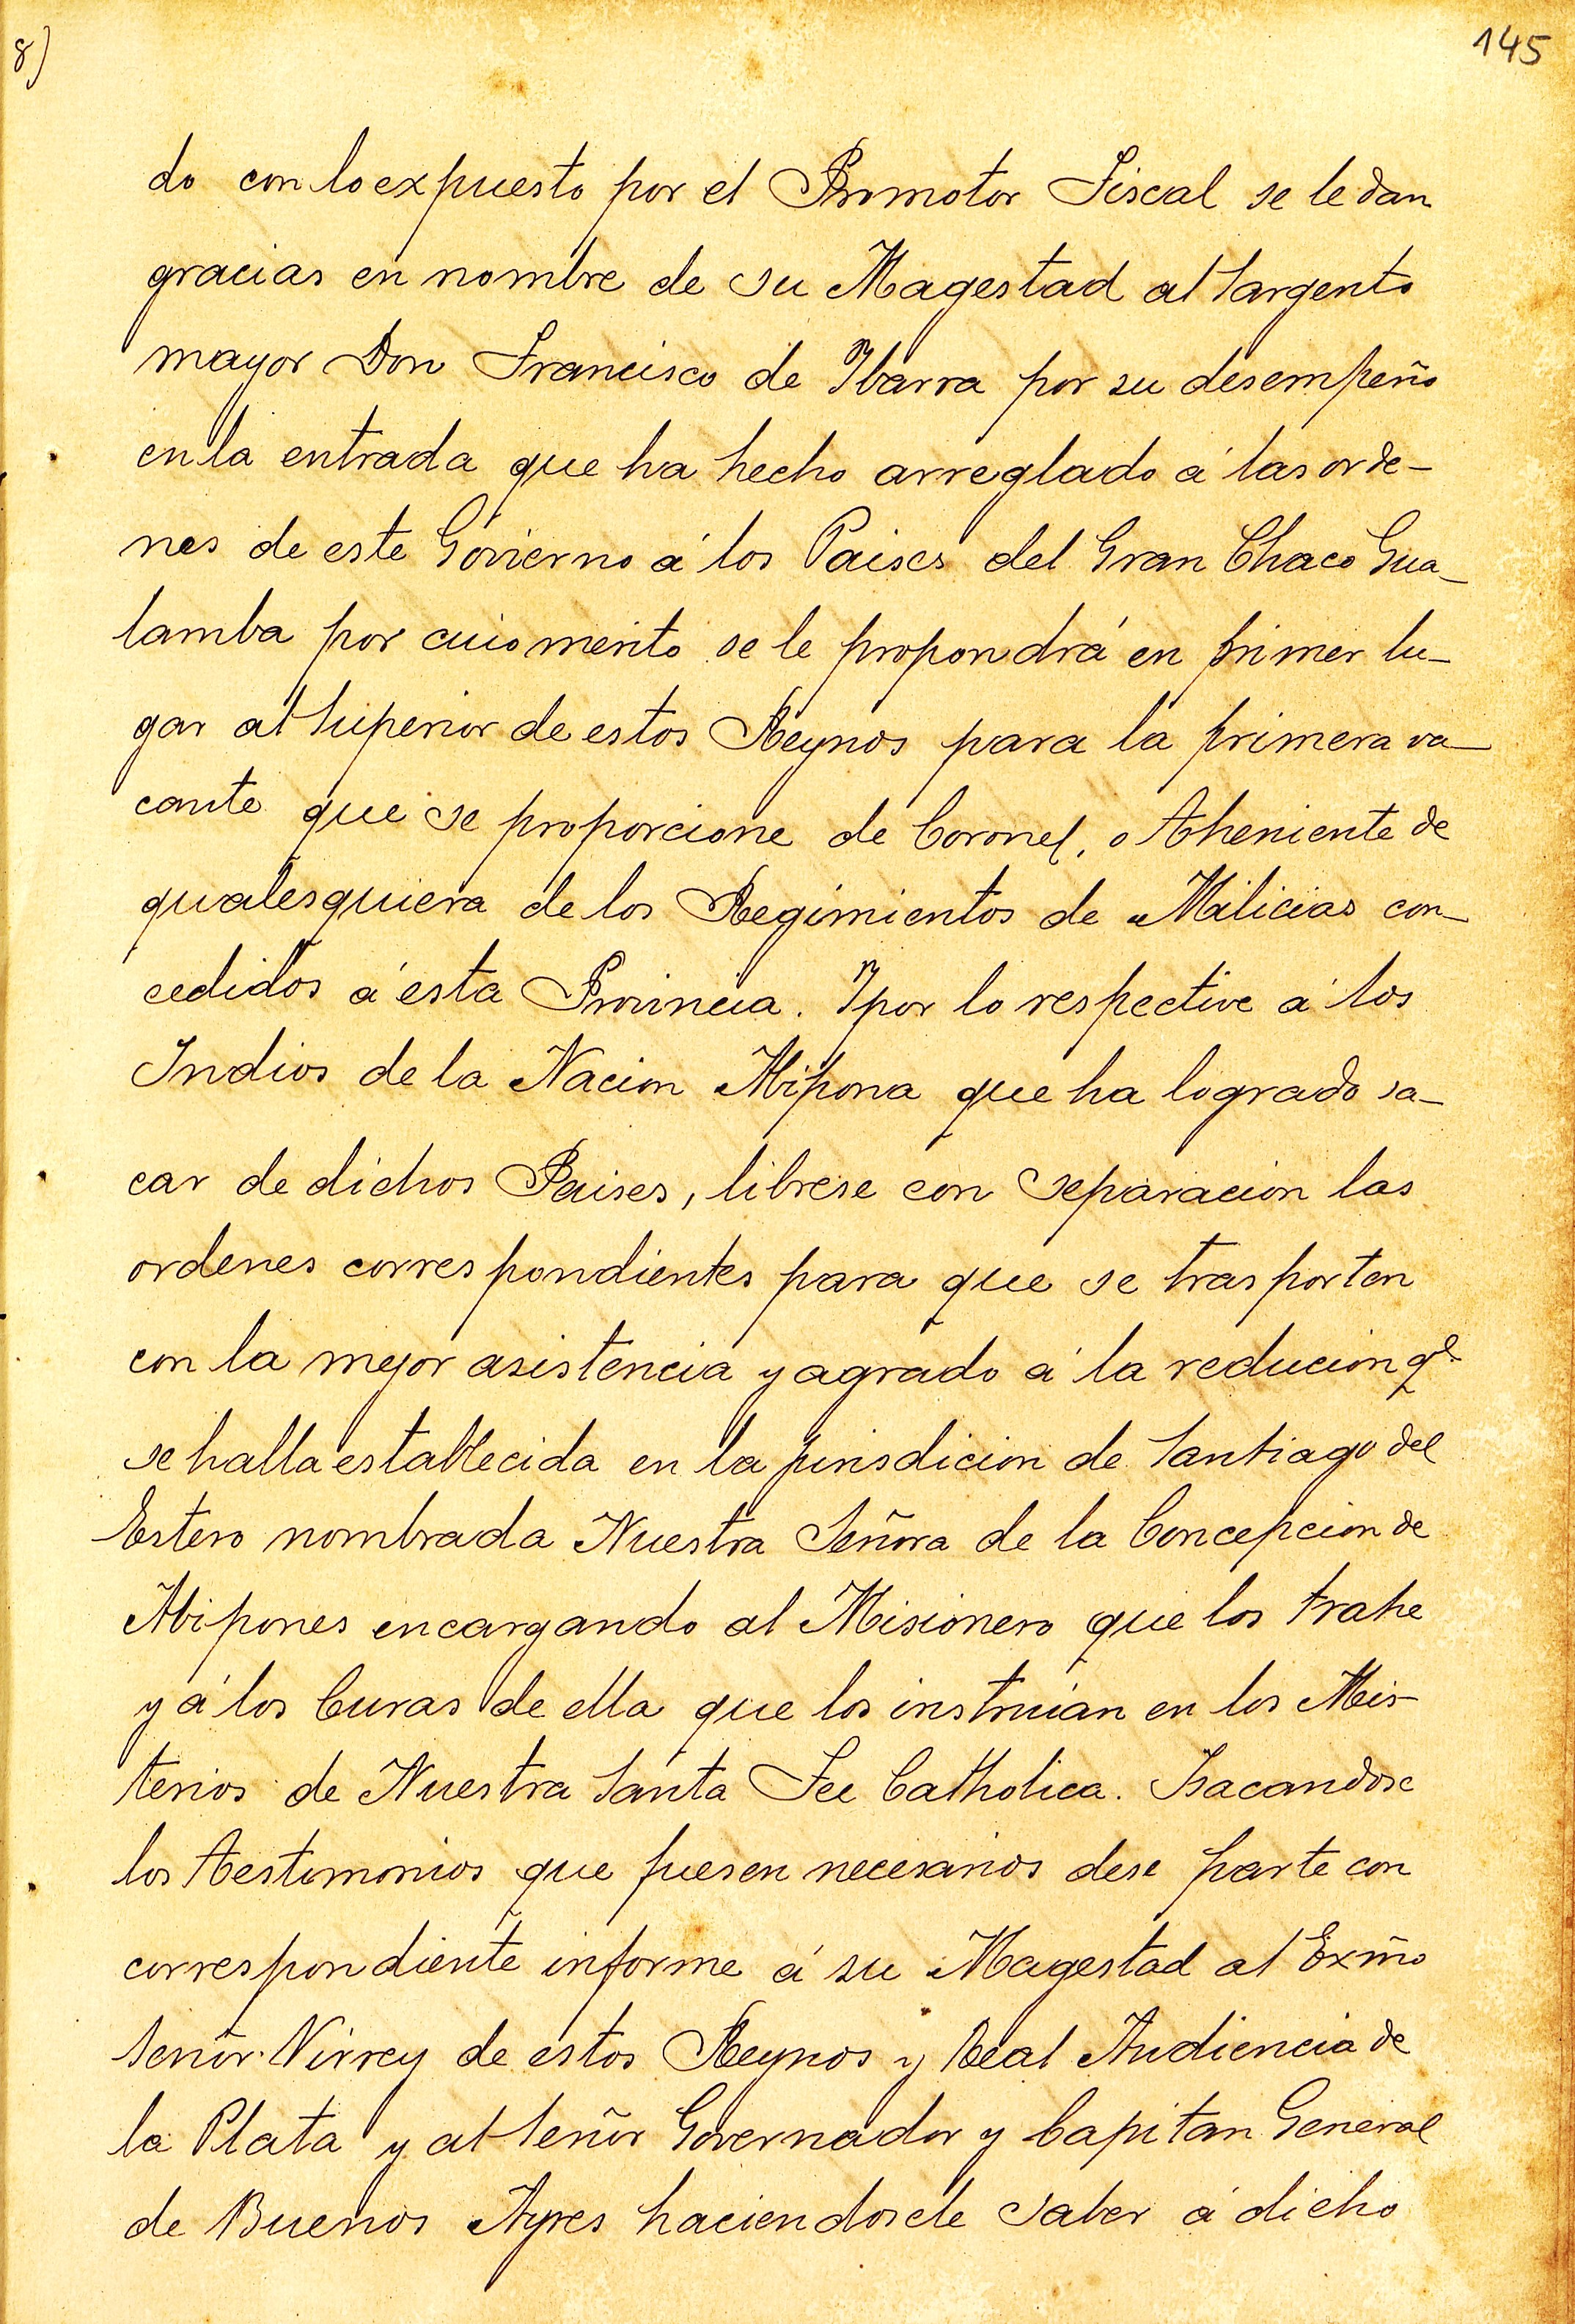 8)
145
do con lo expuesto por el Promotor Fiscal se le dan
gracias en nombre de su Magestad al Sargento
mayor Don Francisco de Ybarra por su desempeño
en la entrada que ha hecho arreglado á las orde-
nes de este Govierno á los Paises del Gran Chaco Gua-
lamba por cuio merito se le propondrá en primer lu-
gar al Superior de estos Reynos para la primera va-
cante que se proporcione de Coronel, o Theniente de
qualesquiera de los Regimientos de Milicias con-
cedidos á esta Provincia. Y por lo respective á los
Indios de la Nacion Abipona que ha logrado sa-
car de dichos Paises, librese con separacion las
ordenes correspondientes para que se trasporten
con la mejor asistencia y agrado á la reducion qe.
se halla establecida en la jurisdicion de Santiago del
Estero nombrada Nuestra Señora de la Concepcion de
Abipones encargando al Misionero que los trahe
y á los Curas de ella que los instruian en los Mis-
terios de Nuestra Santa Fee Catholica. Y sacandose
los Testimonios que fuesen necesarios dese parte con
correspondiente informe á su Magestad al Exmo
Señor Virrey de estos Reynos y Real Audiencia de
la Plata y al Señor Governador y Capitan General
de Buenos Ayres haciendosele saber á dicho